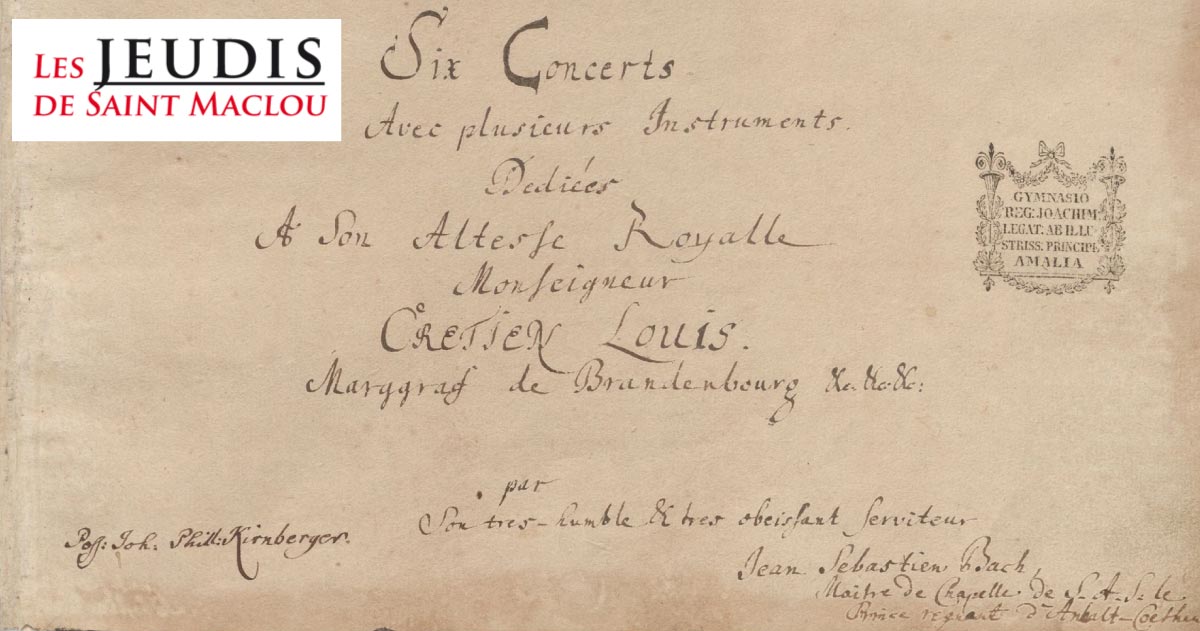 LES JEUDIS
DE SAINT MACLOU
Six Concerts
Avec plusieurs Instruments.
Dediées
A Son Altesse Royalle
Monseigneur
CRETIEN LOUIS.
Marggraf de Brandenbourg &c.&c.&c:
par
Son tres-humble & tres obeissant serviteur
Jean Sebastien Bach,
Maitre de Chapelle de S. A. S. le
Prince regnant d'Anhalt-Coethe
Poss: Joh: Phill: Kirnberger.
GYMNASIO
REG: JOACHIM:
LEGAT: AB ILLU
STRISS: PRINCIPE
AMALIA